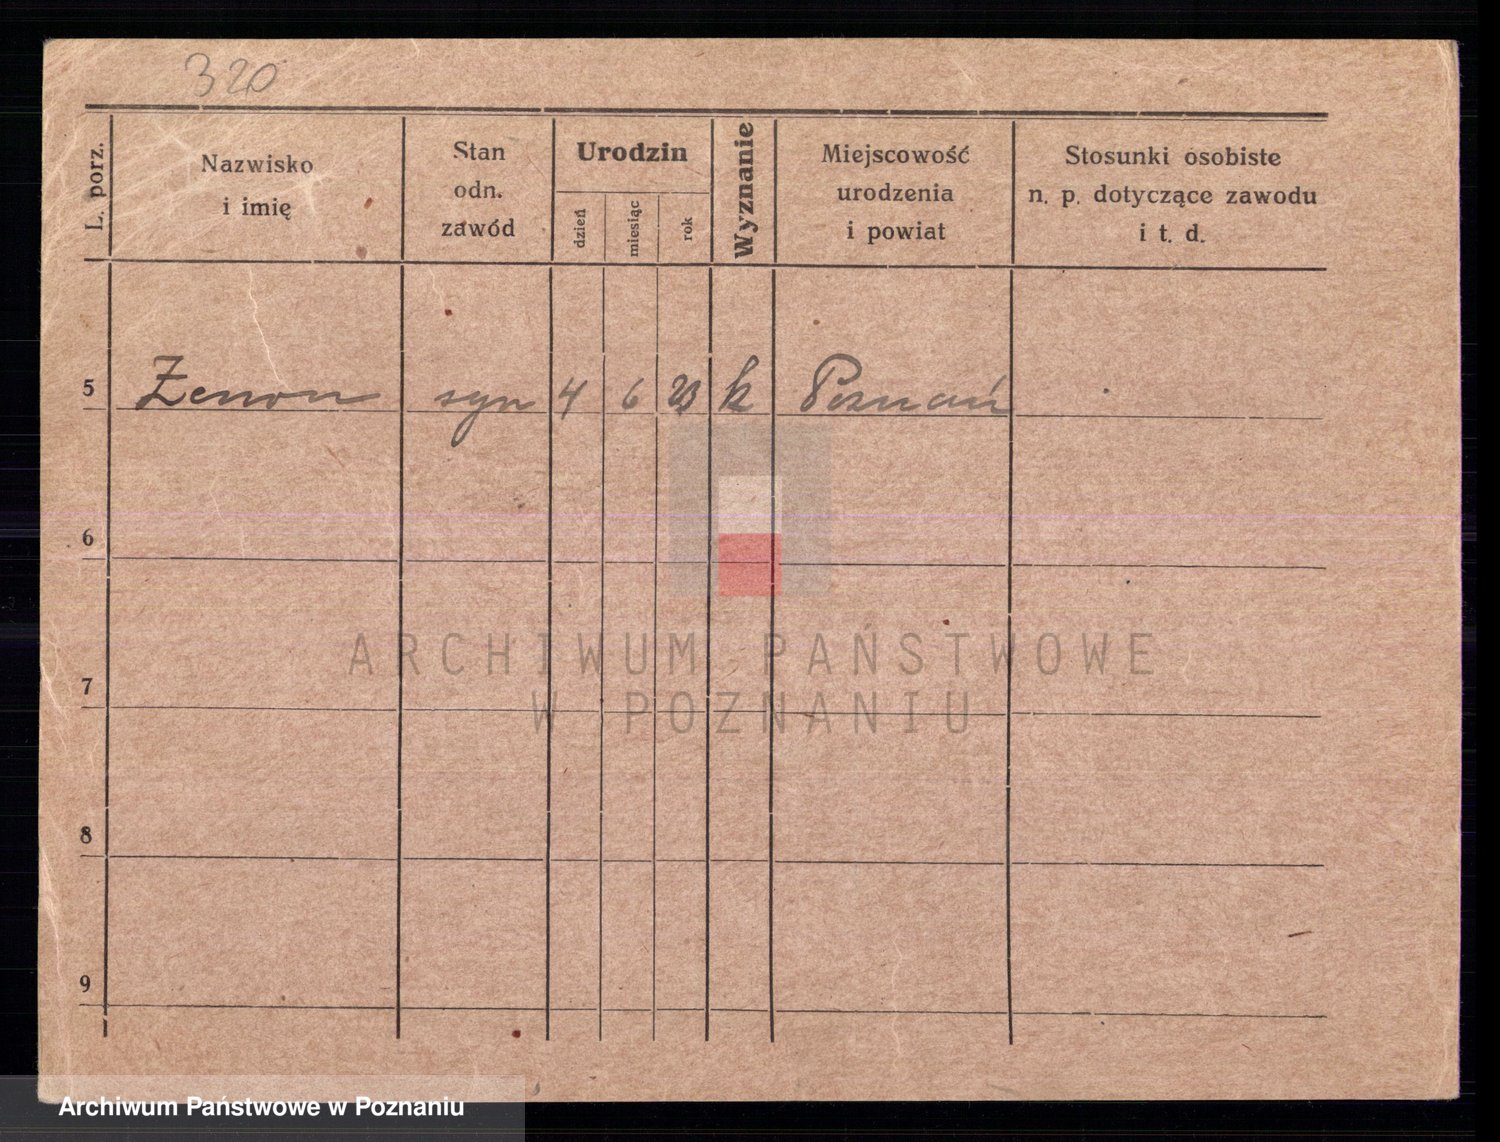 320
L. porz.
Nazwisko
i imię
Stan
odn.
zawód
Urodzin
dzień
miesiąc
rok
Wyznanie
Miejscowość
urodzenia
i powiat
Stosunki osobiste
n. p. dotyczące zawodu
i t. d.
5 Zenon syn 4 6 23 k Poznań
6
7
8
9
ARCHIWUM PAŃSTWOWE
W POZNANIU
Archiwum Państwowe w Poznaniu